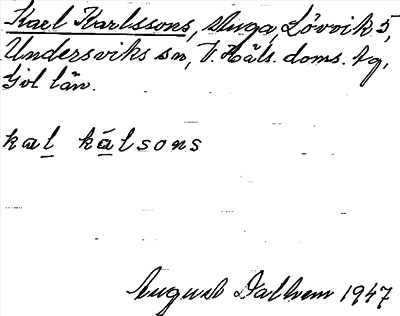 Karl Karlssons, stuga, Lövvik 5,
Undersviks sn, V. Häls. doms. tg,
Gvl län.
kal kálsons
August Dalhem 1947